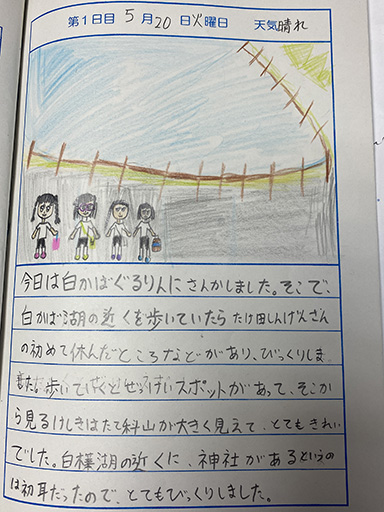 第1日目 5月20日火曜日 天気晴れ
今日は白かばぐるりんにさんかしました。そこで、
白かば湖の近くを歩いていたらたけ田しんげんさん
の初めて休んだところなどがあり、びっくりしま
した。歩いていくとぜっけいスポットがあって、そこか
ら見るけしきはたて科山が大きく見えて、とてもきれい
でした。白樺湖の近くに、神社があるというの
は初耳だったので、とてもびっくりしました。